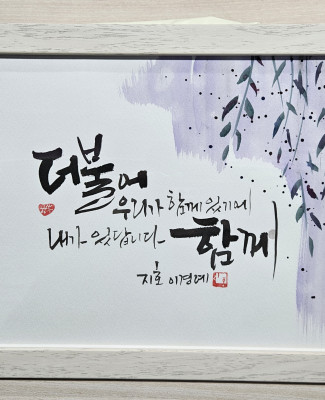 더불어
우리가 함께 있기에
내가 있답니다 함께
지호 이경예